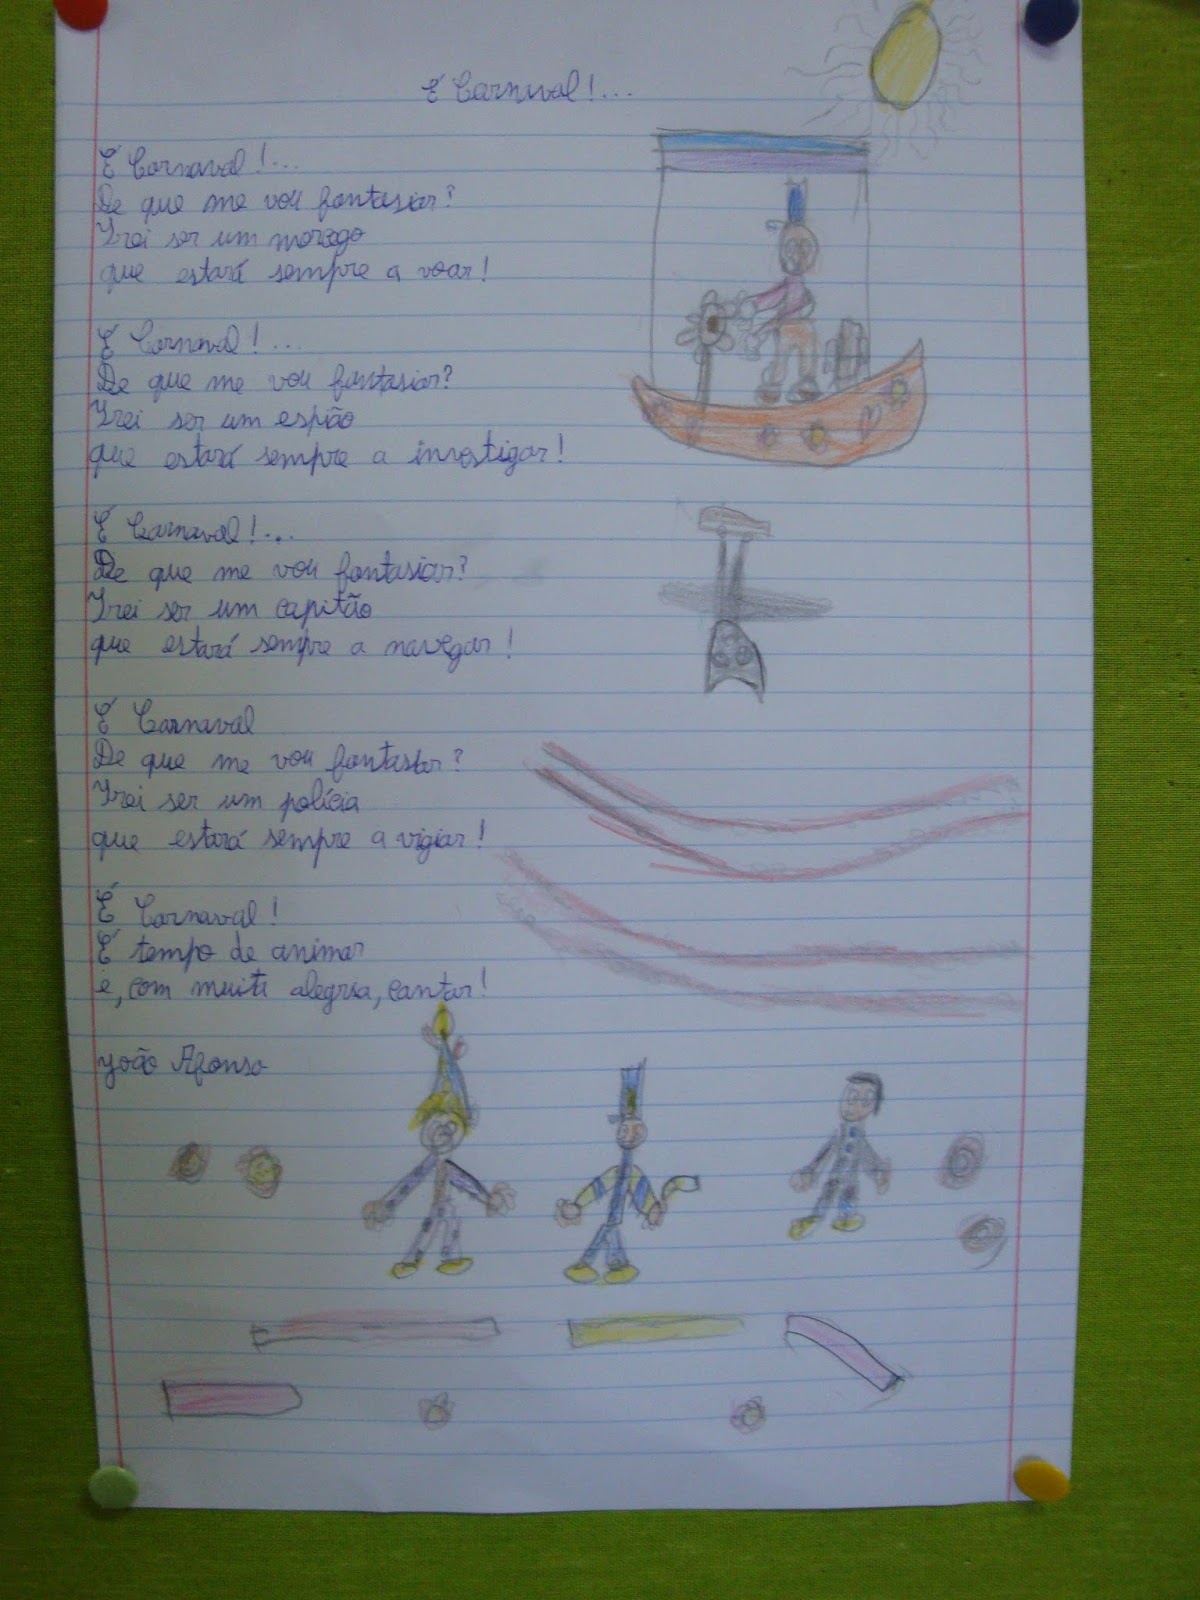 É Carnaval!...
É Carnaval!...
De que me vou fantasiar?
Irei ser um morcego
que estará sempre a voar!
É Carnaval!...
De que me vou fantasiar?
Irei ser um espião
que estará sempre a investigar!
É Carnaval!...
De que me vou fantasiar?
Irei ser um capitão
que estará sempre a navegar!
É Carnaval
De que me vou fantasiar?
Irei ser um polícia
que estará sempre a vigiar!
É Carnaval!
É tempo de animar
e, com muita alegria, cantar!
João Afonso